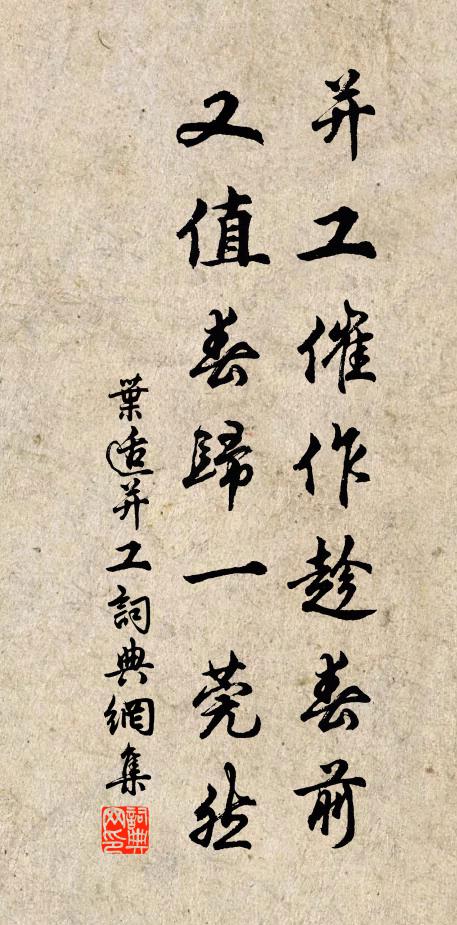 并工催作趁春前
又值春歸一莞然
葉适并工詞典網集
詞典网印